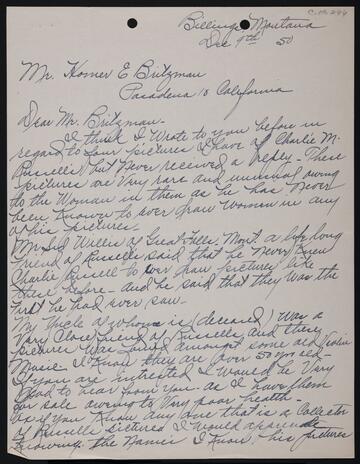 C.10.296
Billings Montana
Dec 9th 50
Mr. Homer E Britzman
Pasadena 10 California
Dear Mr. Britzman -
I think I wrote to you before in
regard to four pictures I have of Charlie M.
Russells but never received a reply - These
pictures are very rare and unusual owing
to the Woman in them as he has never
been known to ever draw women in any
of his pictures.
Mr Sid Willis of Great Falls. Mont. a life long
friend of Russells said that he never knew
Charlie Russell to ever draw pictures like
these before - and he said that they was the
first he had ever saw -
My Uncle of whom is (deceased) was a
very close friend of Russells and these
pictures was found amongst some old Violin
Music - I know they are over 50 yrs old -
If you are intrested I would be very
glad to hear from you - as I have them
for sale owing to very poor health -
or if you know any one that is a Collector
of Russells pictures I would appreciate
knowing the names I know his pictures